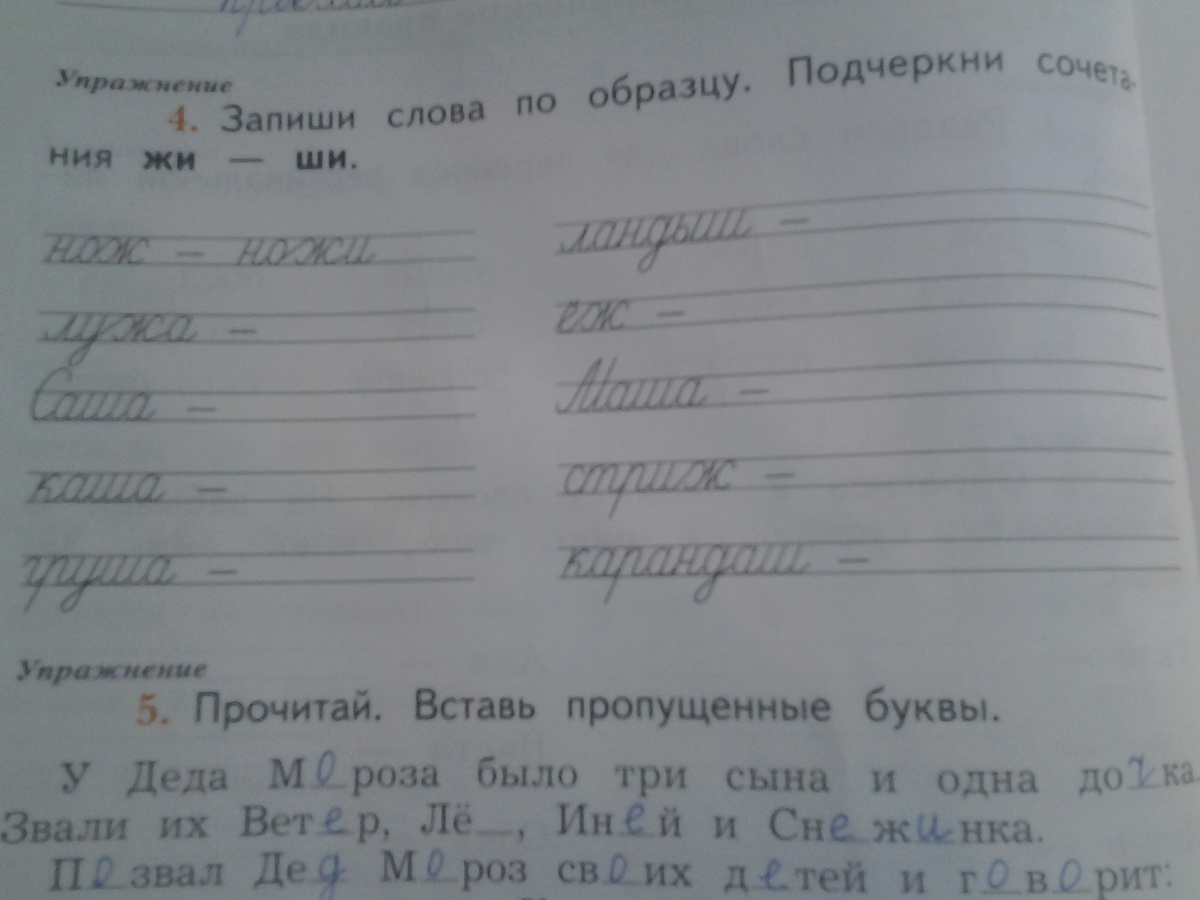 Упражнение
4. Запиши слова по образцу. Подчеркни сочета-
ния жи — ши.
нож – ножи
лужа –
Саша –
каша –
груша –
ландыш –
ёж –
Маша –
стриж –
карандаш –
Упражнение
5. Прочитай. Вставь пропущенные буквы.
У Деда Мороза было три сына и одна дочка.
Звали их Ветер, Лё_, Иней и Снежинка.
Позвал Дед Мороз своих детей и говорит: